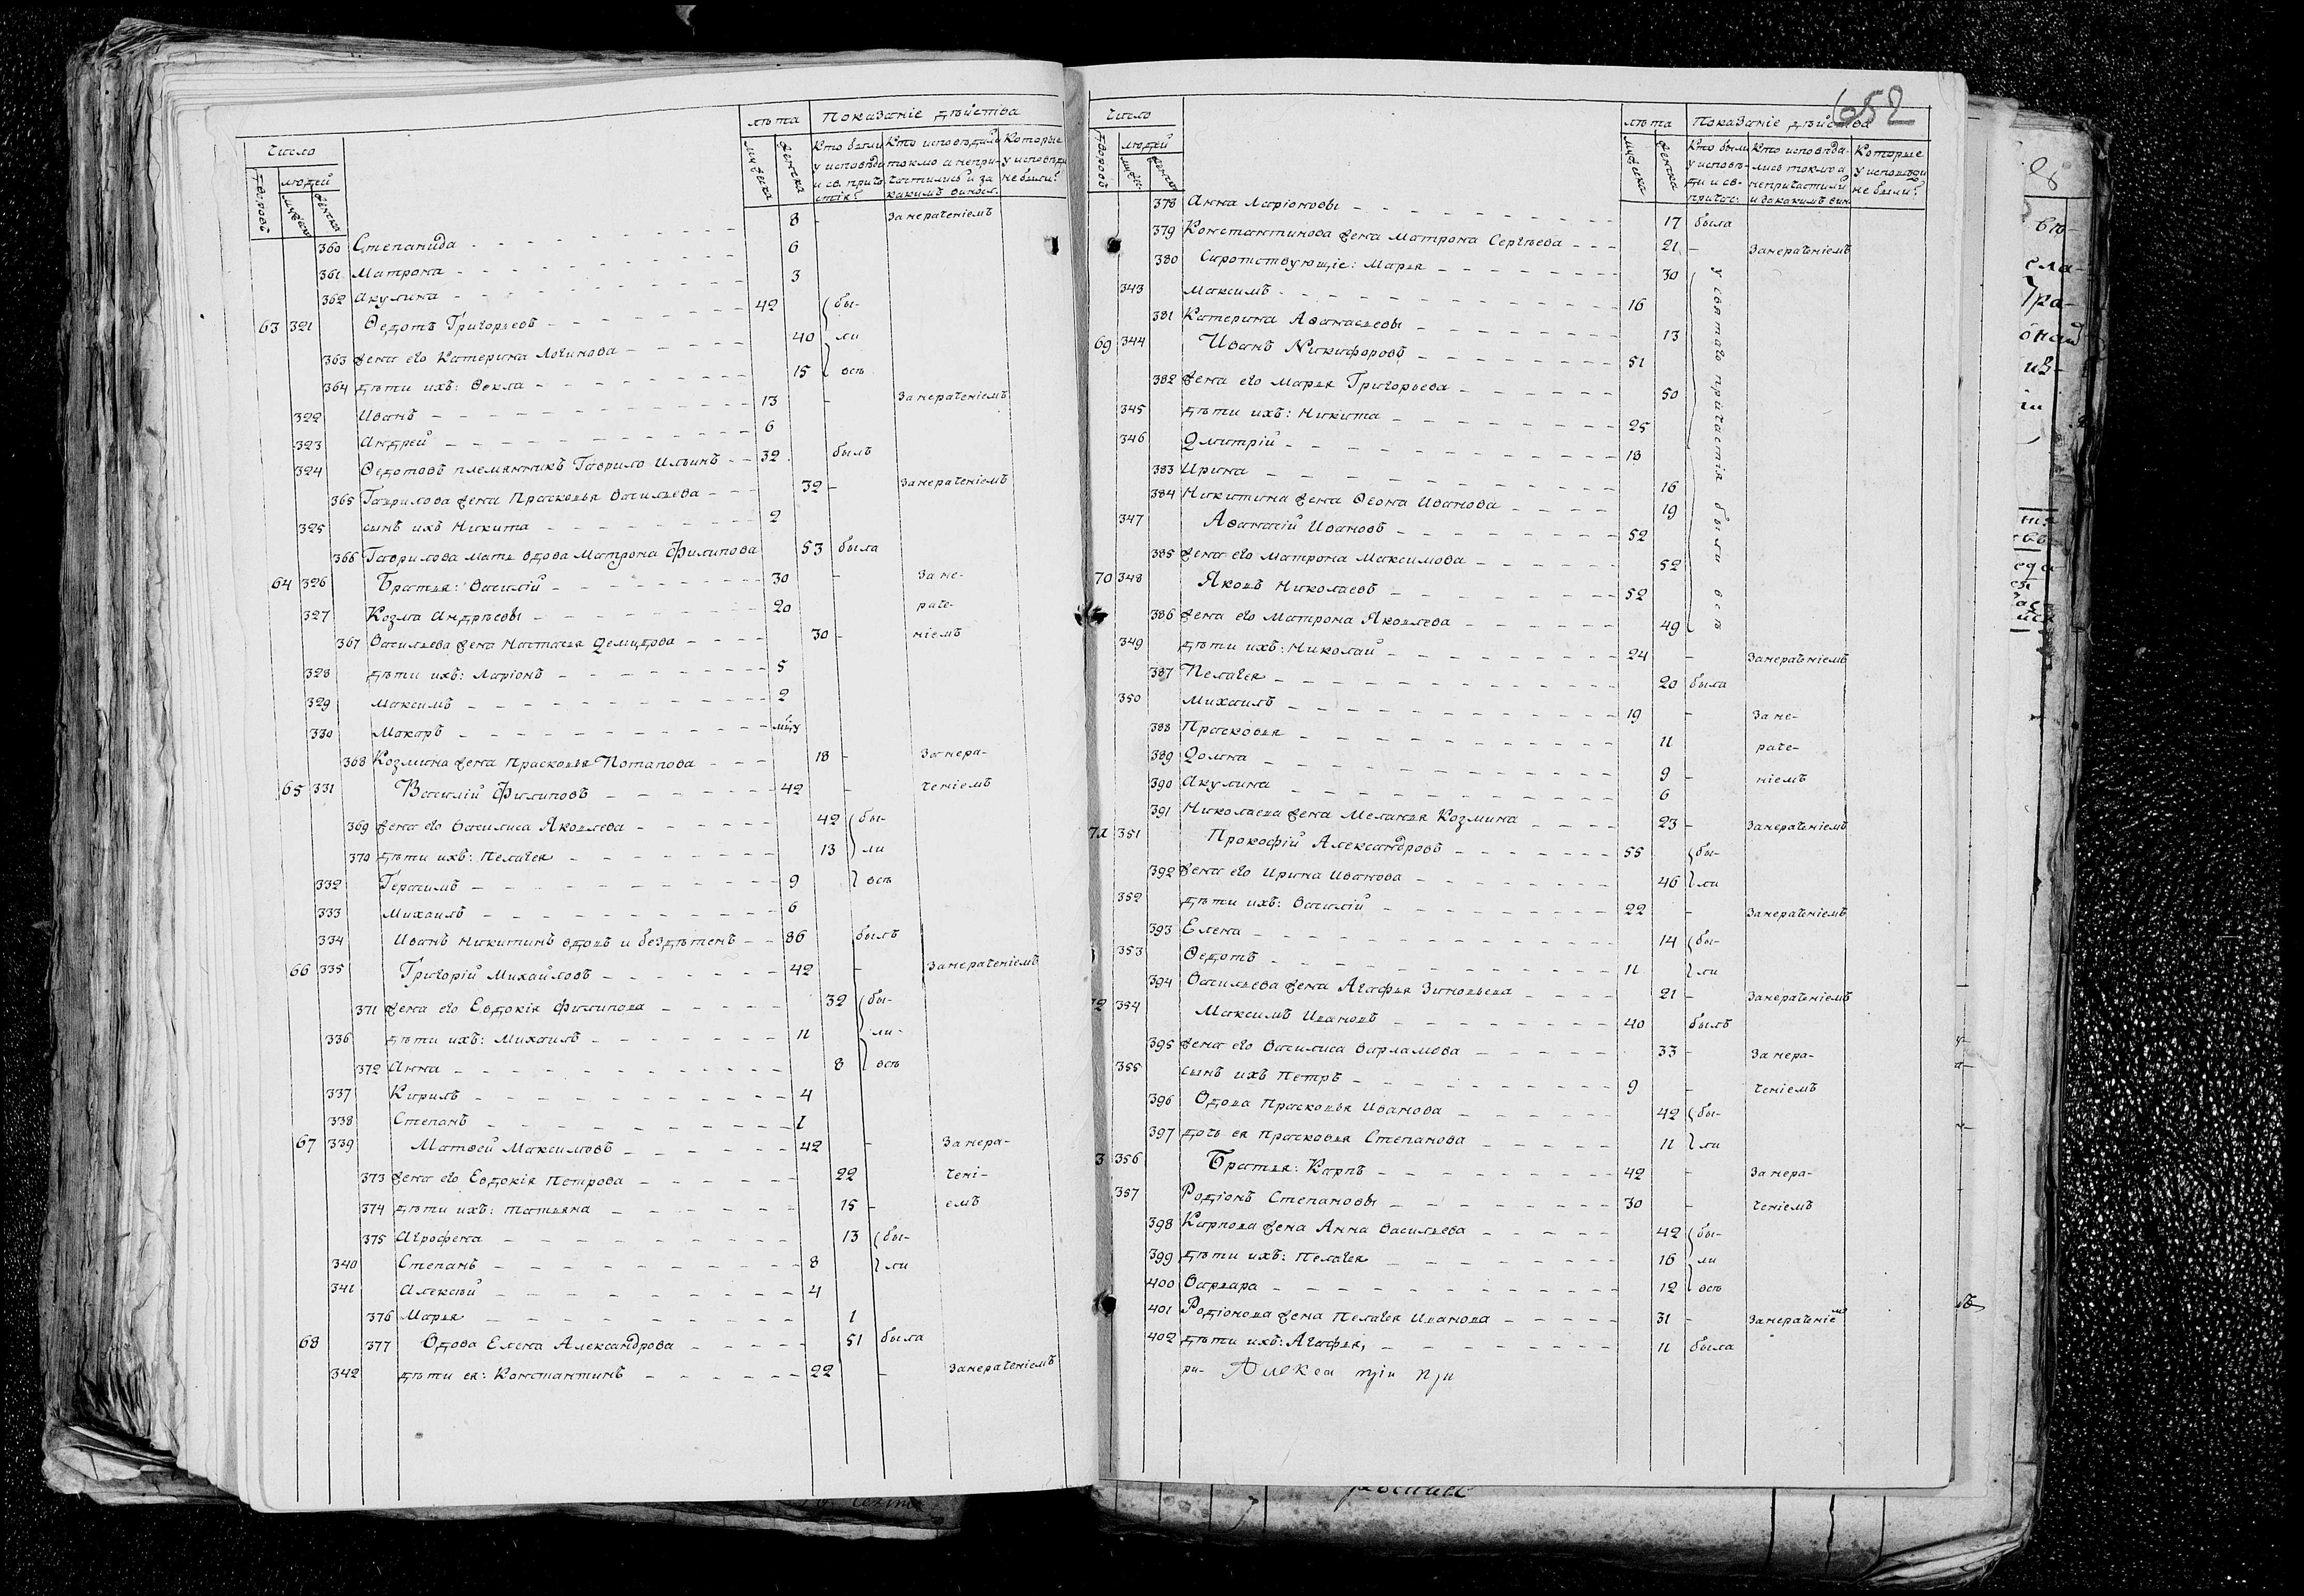 Число
лѣта Показаніе дѣйства
дворовъ людей
мужеска женска
мужеска женска Кто были у исповѣди и св. прича- Кто исповѣдали токмо а непри- частились и за какимъ виносл. Которые у исповѣди не были?
8 - Занераченіемъ
360 Степанида 6
361 Матрона 3
362 Акулина
63 321 Ѳедотъ Григорьевъ 42 бы-
363 жена его Катерина Логинова 40 ли
364 дѣти ихъ: Ѳекла 15 всѣ
322 Иванъ 13 - Занераченіемъ
323 Андрей 6
324 Ѳедотовъ племянникъ Гаврило Ильинъ 32 былъ
365 Гаврилова жена Прасковья Васильева 32 - Занераченіемъ
325 сынъ ихъ Никита 2
366 Гаврилова мать вдова Матрона Филипова 53 была
64 326 Братья: Василій 30 - Зане-
327 Козма Андрѣевы 20 раче-
367 Васильева жена Настасья Демидова 30 - ніемъ
328 дѣти ихъ: Ларіонъ 5
329 Максимъ 2
330 Макаръ
368 Козмина жена Прасковья Потапова 18 - Занера-
65 331 Василій Филиповъ 42 - ченіемъ
369 жена его Василиса Яковлева 42 бы-
370 дѣти ихъ: Пелагея 13 ли
332 Герасимъ 9 всѣ
333 Михаилъ 6
334 Иванъ Никитинъ вдовъ и бездѣтенъ 86 былъ
66 335 Григорій Михайловъ 42 - Занераченіемъ
371 жена его Евдокія Филипова 32 бы-
336 дѣти ихъ: Михаилъ 11 ли-
372 Анна 8 всѣ
337 Кирилъ 4
338 Степанъ 1
67 339 Матвей Максимовъ 42 - Занера-
373 жена его Евдокія Петрова 22 чені-
374 дѣти ихъ: Татьяна 15 - емъ
375 Агрофена 13 бы-
340 Степанъ 8 ли
341 Алексѣй 4
376 Марья 1
68 377 Вдова Елена Александрова 51 была
342 дѣти ея: Константинъ 22 - Занераченіемъ
652
Число
лѣта Показаніе дѣйства
дворовъ людей
мужес. женска
мужеска женска Кто были у исповѣ- ди и св. причас. Кто исповѣда- лись токмо а непричастили и закакимъ вин. Которые у исповѣди не были?
378 Анна Ларіоновы 17 была
379 Константинова жена Матрона Сергѣева 21 - Занераченіемъ
380 Сиротствующіе: Марья 30 у святаго причастія были всѣ
343 Максимъ 16
381 Катерина Аѳанасьевы 13
69 344 Иванъ Никифоровъ 51
382 жена его Марья Григорьева 50
345 дѣти ихъ: Никита 25
346 Дмитрій 18
383 Ирина 16
384 Никитина жена Ѳеона Иванова 19
347 Аѳанасій Ивановъ 52
385 жена его Матрона Максимова 52
70 348 Яковъ Николаевъ 52
386 жена его Матрона Яковлева 49
349 дѣти ихъ: Николай 24 - Занераченіемъ
387 Пелагея 20 была
350 Михаилъ 19 - Зане-
388 Прасковья 11 раче-
389 Домна 9 - ніемъ
390 Акулина 6
391 Николаева жена Меланья Козмина 23 - Занераченіемъ
71 351 Прокофій Александровъ 55 бы-
392 жена его Ирина Иванова 46 ли
352 дѣти ихъ: Василій 22 - Занераченіемъ
393 Елена 14 бы-
353 Ѳедотъ 11 ли
394 Васильева жена Агафья Зиновьева 21 - Занераченіемъ
72 354 Максимъ Ивановъ 40 былъ
395 жена его Василиса Варламова 33 - Занера-
355 сынъ ихъ Петръ 9 - ченіемъ
396 Вдова Прасковья Иванова 42 бы-
397 дочь ея Прасковья Степанова 11 ли
3 356 Братья: Карпъ 42 - Занера-
357 Родіонъ Степановы 30 - ченіемъ
398 Карпова жена Анна Васильева 42 бы-
399 дѣти ихъ: Пелагея 16 ли
400 Варвара 12 всѣ
401 Родіонова жена Пелагея Иванова 31 - Занераченіемъ
402 дѣти ихъ: Агафья, 11 была